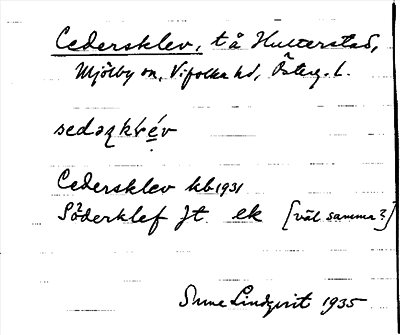 Cedersklev, t å Hulterstad,
Mjölby sn, Vifolka hd, Österg. l.
Cedersklev kb 1931
Söderklef Jt. ek [väl samma?]
Sune Lindqvist 1935